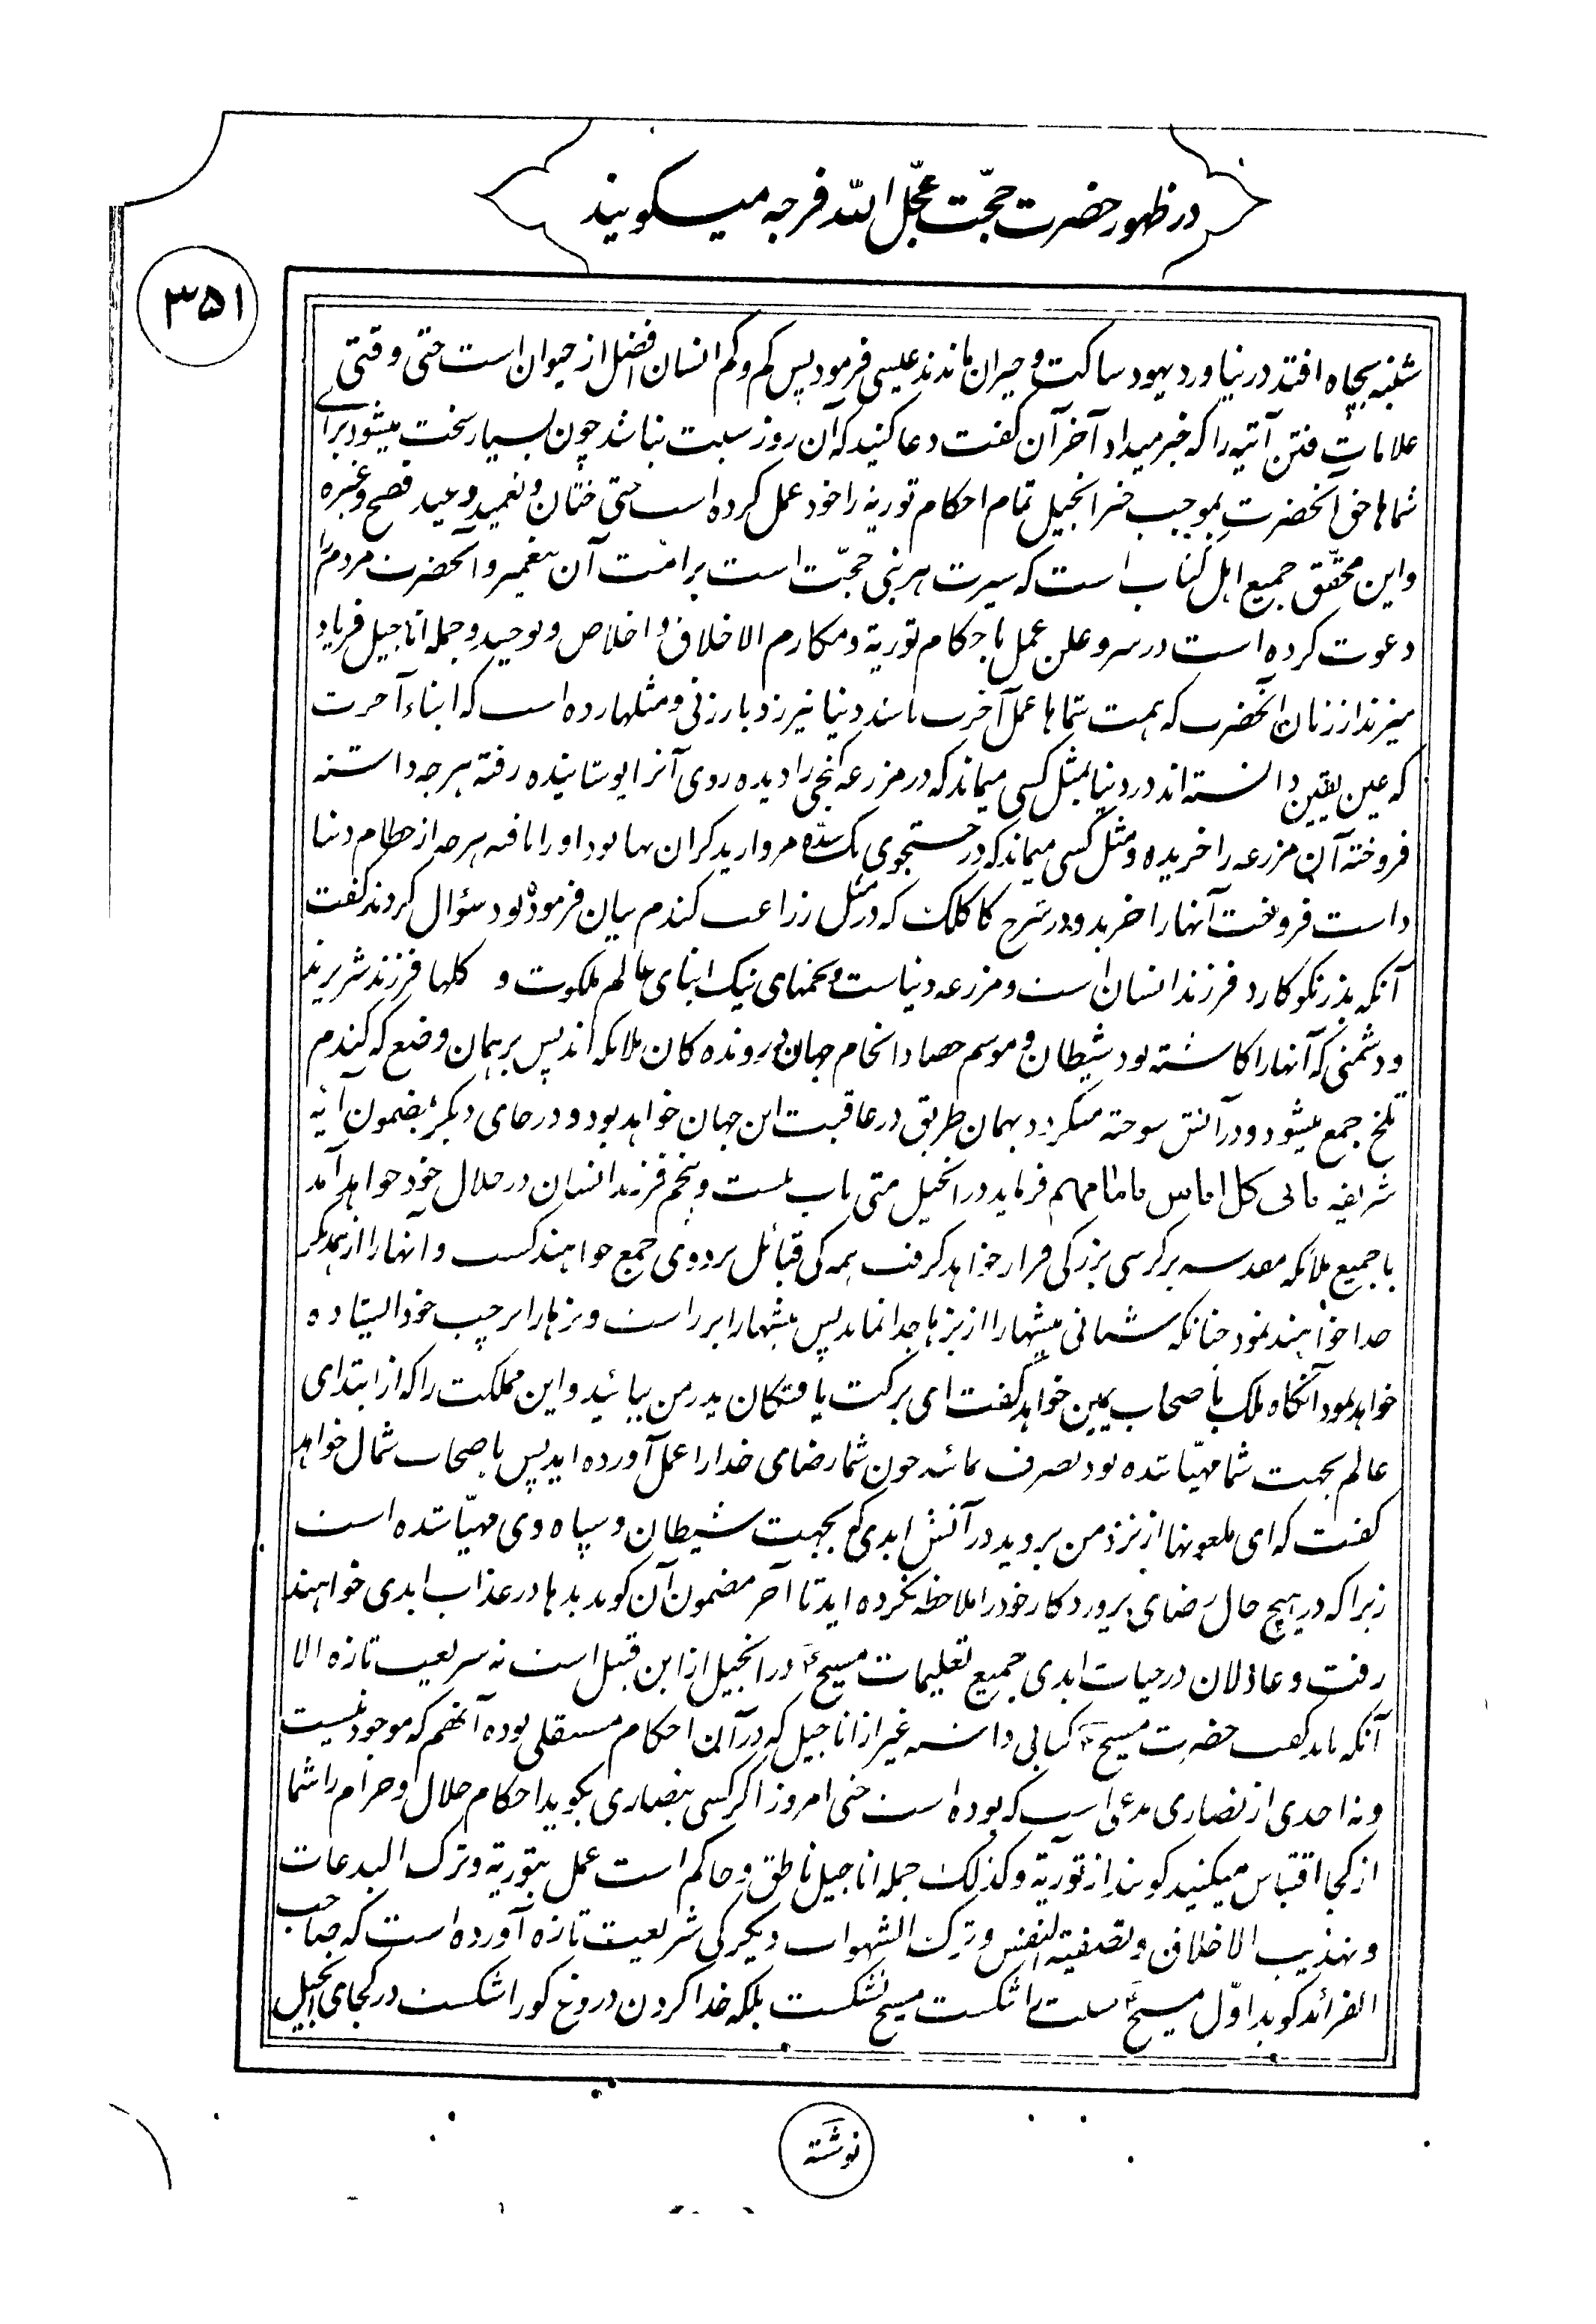 در ظهور حضرت حجّت عجّل الله فرجه میگویند
۳۵۱
شنبه بچاه افتد در نیاورد یهود ساکت و حیران ماندند عیسی فرمود پس کم و کم انسان افضل از حیوان است حتی وقتی
علامات فتن آتیه را که خبر میداد آخر آن گفت دعا کنید که آن روز سبت نباشد چون بسیار سخت میشود برای
شماها خق آنحضرت بموجب خبر انجیل تمام احکام توریة را خود عمل کرده است حتی ختان و تعمید و عید فصح و غیره
و این محقّق جمیع اهل کتاب است که سیرت هر نبی حجّت است بر امّت آن پیغمبر و آنحضرت مردم را
دعوت کرده است در سر و علن عمل باحکام توریة و مکارم الاخلاق و اخلاص و توحید و جمله اناجیل فریاد
میزند از زنان آنحضرت که همت شماها عمل آخرت باشد دنیا نیرزد بارزنی و مثلها زده است که ابناء آخرت
که عین یقین دانسته اند در دنیا بمثل کسی میماند که در مزرعه گنجی را دیده روی آنرا پوشانیده رفته هر چه داشته
فروخته آن مزرعه را خریده و مثل کسی میماند که در جستجوی یک مروارید گران بها بود او را یافته هر چه از حطام دنیا
داشت فروخت آنها را خرید و در شرح کاکلک که در مثل زراعت گندم بیان فرموده بود سؤال کردند گفت
آنکه بذر نکو کارد فرزند انسان است و مزرعه دنیاست و تخمهای نیک ابنای عالم ملکوت و کلها فرزند شریرند
و دشمنی که آنها را کاشته بود شیطان و موسم حصاد انجام جهان و دروندهکان ملائکه اند پس بر همان وضع که گندم
تلخ جمع میشود و در آتش سوخته میگردد بهمان طریق در عاقبت این جهان خواهد بود و در جای دیگر بمضمون آیه
شریفه فرماید در انجیل متی باب بیست و پنجم فرزند انسان در جلال خود خواهد آمد
با جمیع ملائکه مقدسه بر کرسی بزرگی قرار خواهد گرفت همه کی قبائل نزد وی جمع خواهند گشت و آنها را از همدیگر
جدا خواهند نمود چنانکه شبانی میشها را از بزها جدا نماید پس میشها را بر راست و بزها را بر چپ خود ایستاده
خواهد نمود آنگاه ملک باصحاب یمین خواهد گفت ای برکت یافتگان پدر من بیائید و این مملکت را که از ابتدای
عالم بجهت شما مهیّا شده بود تصرف نمائید چون شما رضای خدا را عمل آورده اید پس باصحاب شمال خواهد
گفت که ای ملعونها از نزد من بروید در آتش ابدی که بجهت شیطان و سپاه وی مهیّا شده است
زیرا که در هیچ حال رضای پروردکار خود را ملاحظه نکرده اید تا آخر مضمون آن گوید بدها در عذاب ابدی خواهند
رفت و عادلان در حیات ابدی جمیع تعلیمات مسیح ع در انجیل از این قبیل است نه شریعت تازه الا
آنکه باید گفت حضرت مسیح ع کتابی داشته غیر از اناجیل که در آن احکام مستقلی بوده آنهم که موجود نیست
و نه احدی از نصاری مدعی است که بوده است حتی امروز اگر کسی بنصاری بگوید احکام حلال و حرام را شما
از کجا اقتباس میکنید گویند از توریة و کذلک جمله اناجیل ناطق و حاکم است عمل بتوریة و ترک البدعات
و تهذیب الاخلاق و تصفیة النفس و ترک الشهوات دیگر کی شریعت تازه آورده است که صاحب
الفرائد گوید اوّل مسیح ع سبت را شکست مسیح نشکست بلکه خدا کردن دروغ گو را شکست در کجای انجیل
نوشته